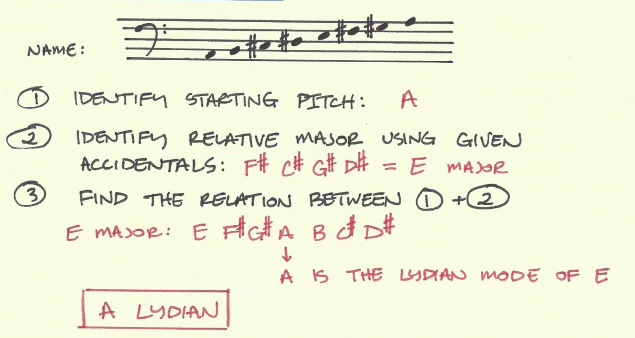 NAME:
① IDENTIFY STARTING PITCH: A
② IDENTIFY RELATIVE MAJOR USING GIVEN
ACCIDENTALS: F# C# G# D# = E MAJOR
③ FIND THE RELATION BETWEEN ① + ②
E MAJOR: E F# G# A B C# D#
↓
A IS THE LYDIAN MODE OF E
A LYDIAN